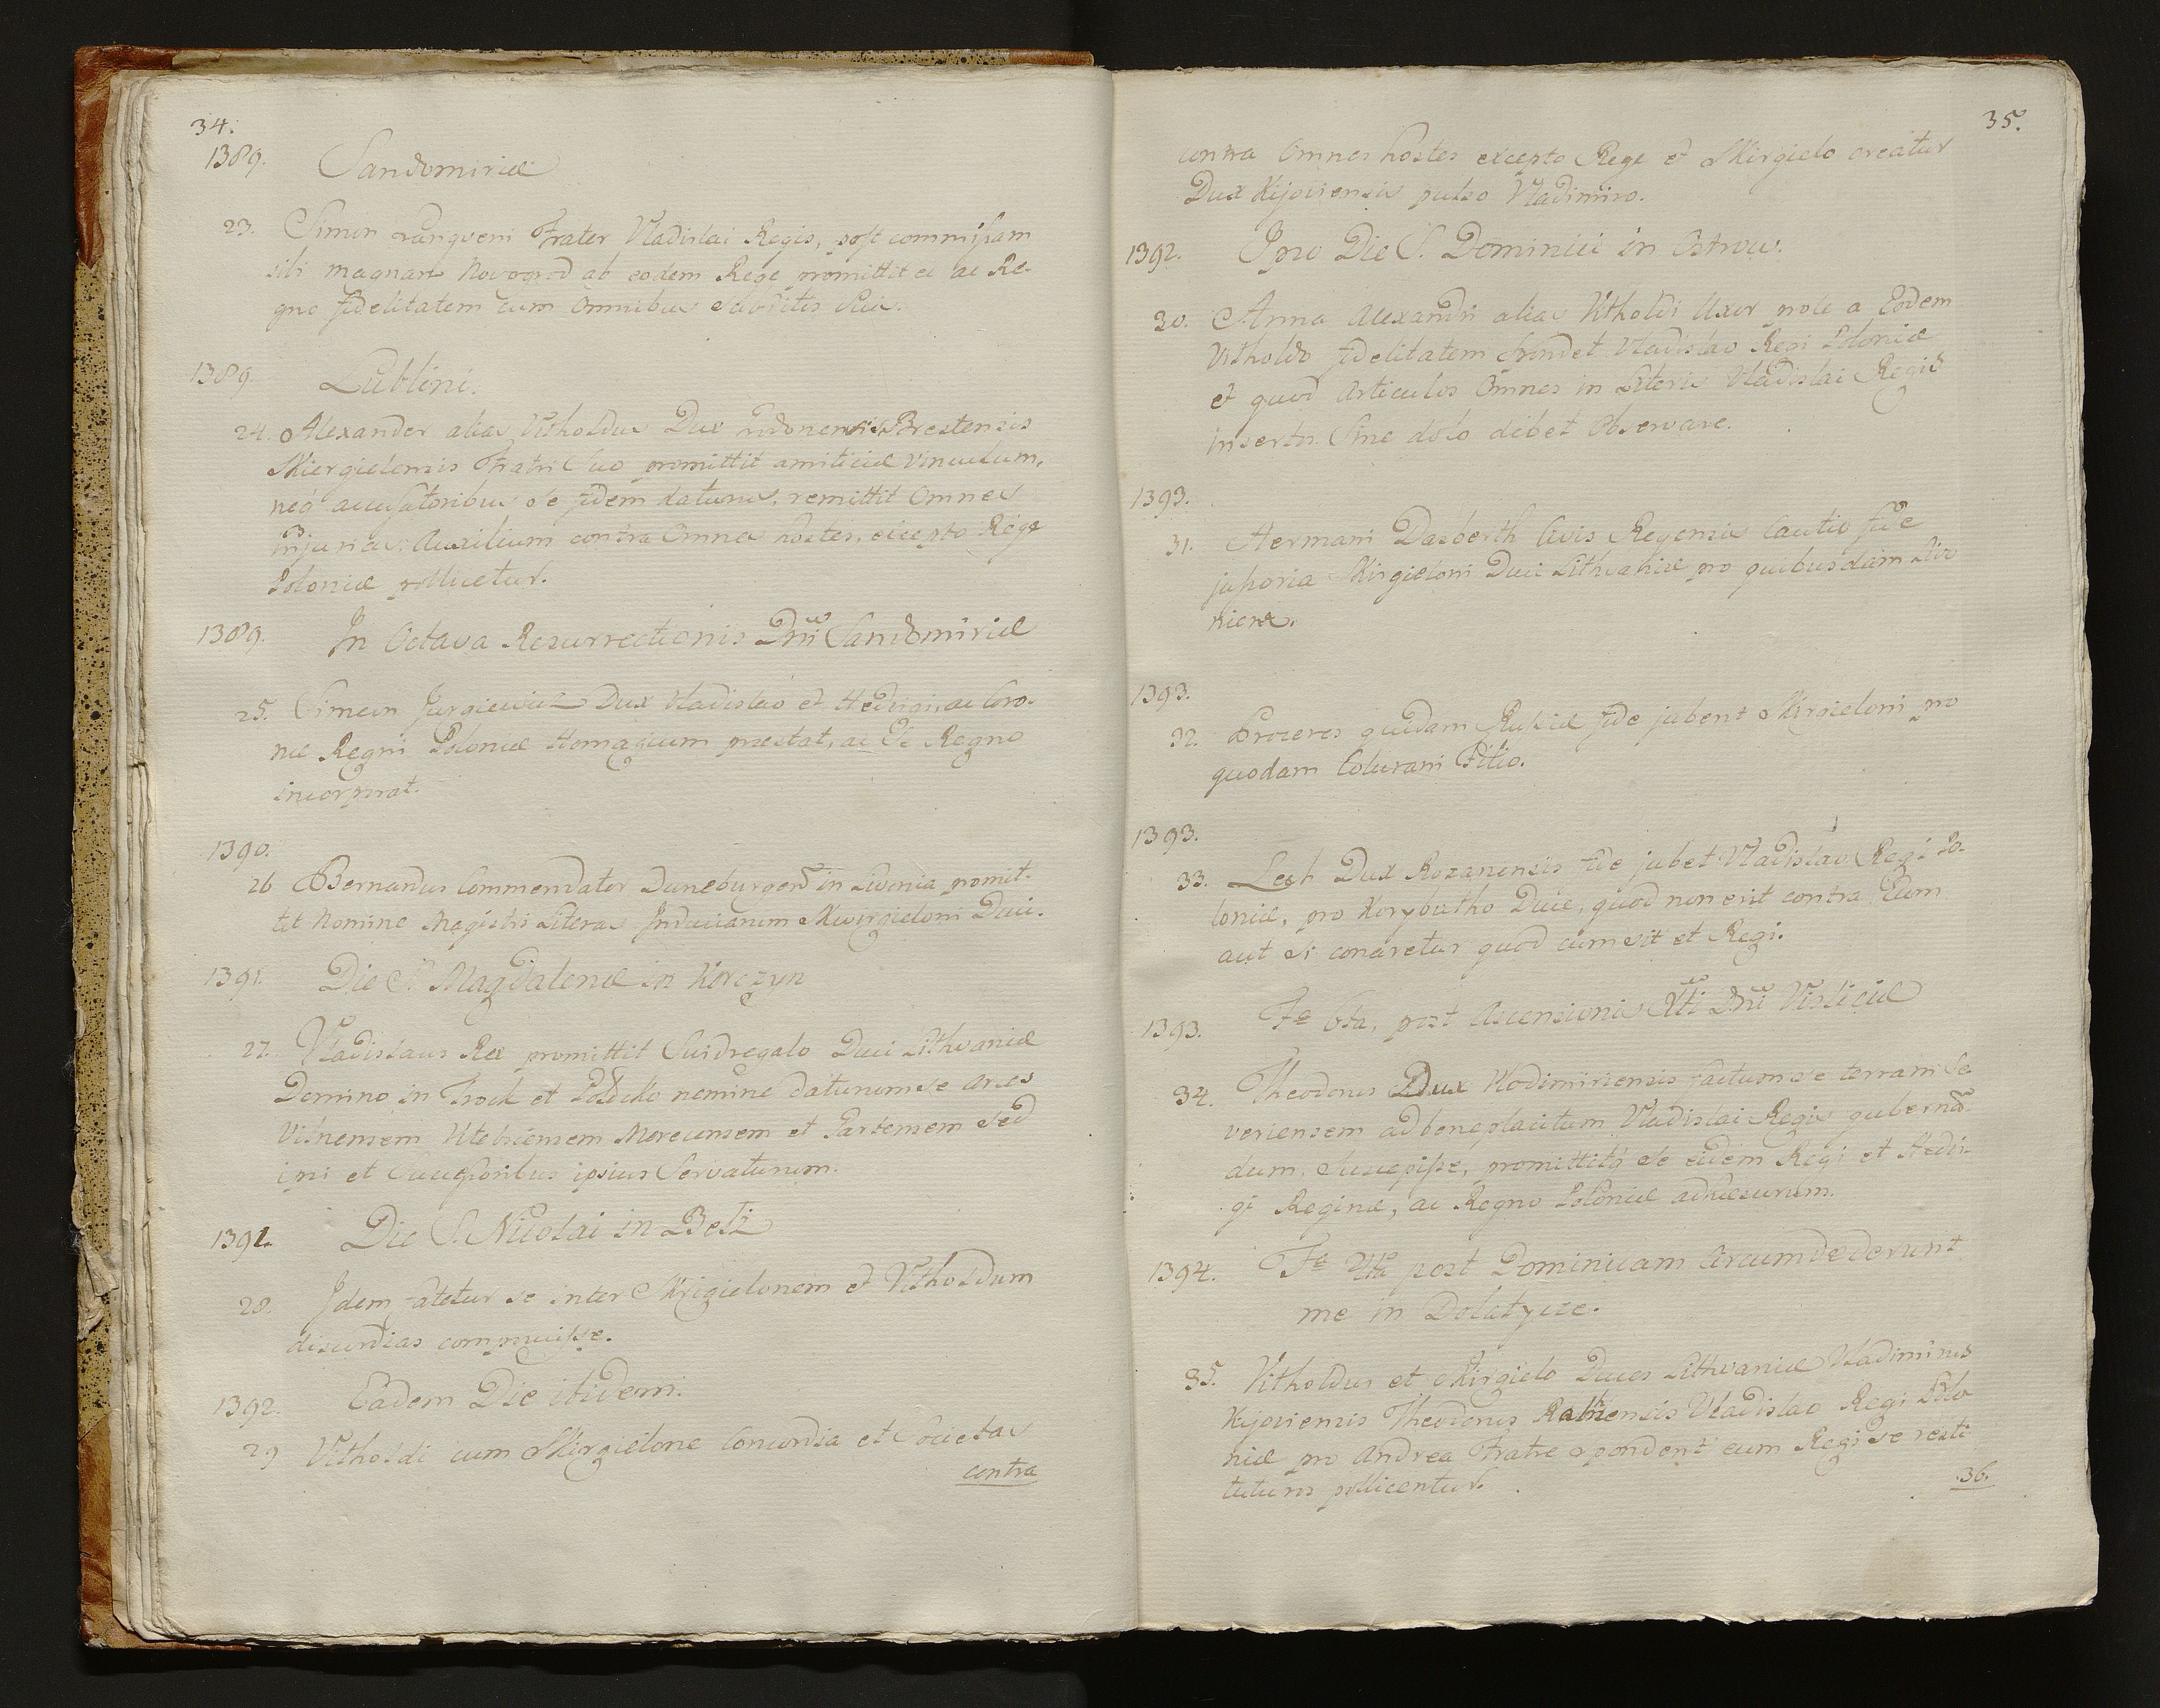 34.
1389. Sandomiriæ
23. Simon Langveni Frater Vladislai Regis, post commissam
sibi magnam Novogrod ab eodem Rege promittit ei ac Re-
gno fidelitatem cum Omnibus Subditis Suis.
1389. Lublini.
24. Alexander alias Vitholdus Dux Brestensis
Skiergielensis Fratri Suo promittit amiticiæ vinculum,
neq́ accusatoribus se fidem daturus, remittit Omnes
injurias. Auxilium contra Omnes hostes, excepto Rege
Poloniæ pollicetur.
1389. In Octava Resurrectionis Dni Sandomiriæ
25. Simeon Jurgiewicz Dux Vladislao et Hedvigi, ac Coro-
næ Regni Poloniæ Homagium præstat, ac Se Regno
incorporat.
1390.
26 Bernardus Commendator Duneburgen in Livonia promit-
tit Nomine Magistri Literas Induciarum Skwirgieloni Duci.
1391. Die S. Magdalenæ in Korczyn
27. Vladislaus Rex promittit Suidregalo Duci Lithvaniæ
Domino in Trock et Polocko nemine daturum se arces
Vilnensem Vitebsiensem Merecensem et Gartensem sed
ipsi et Successoribus ipsius Servaturum.
1392. Die S. Nicolai in Belz
28. Idem fatetur se inter Skirgielonem et Vitholdum
discordias compescuisse.
1392. Eadem Die ibidem.
29 Vitholdi cum Skirgielone Concordia et Societas
contra
35.
contra Omnes hostes excepto Rege et Skirgielo creatur
Dux Kijoviensis pulso Vladimiro.
1392. Ipso Die S. Dominici in Ostrow.
30. Anna Alexandri alias Vitholdi Uxor prole a Eodem
Vitholdo fidelitatem spondet Vladislao Regi Poloniæ
et quod Articulos Omnes in Literis Vladislai Regis
insertos Sine dolo debet Observare.
1393.
31. Hermani Dasberth Civis Regensis Cautio fide
jussoria Skirgieloni Duci Lithvaniæ pro quibusdam Liv
niens.
1393.
32. Proceres quidam Russiæ fide jubent Skirgieloni pro
quodam Filio.
1393.
33. Lesh Dux Rozanensis fide jubet Vladislao Regi Po-
loniæ, pro Korybutho Duce, quod non erit contra Eum
aut si conaretur quod cum sit et Regi.
1393. Fa 6ta, post Ascensionis Xti Dni Visliciæ
34. Theodorus Dux Vlodimiriensis factum se terram Se-
veriensem ad beneplacitum Vladislai Regis guberna-
dum, Suscepisse, promittitq́ se eidem Regi et Hedvi-
gi Reginæ, ac Regno Poloniæ adhæsurum.
1394. Fa Vta post Dominicam Circumdederunt
me in Dolatycze.
35. Vitholdus et Skirgielo Duces Lithvaniæ Vladimirus
Kijoviensis Theodorus Ratnensis Vladislao Regi Polo
niæ pro Andrea Fratre spondent eum Regi se resti
tuturos pollicentur.
36.